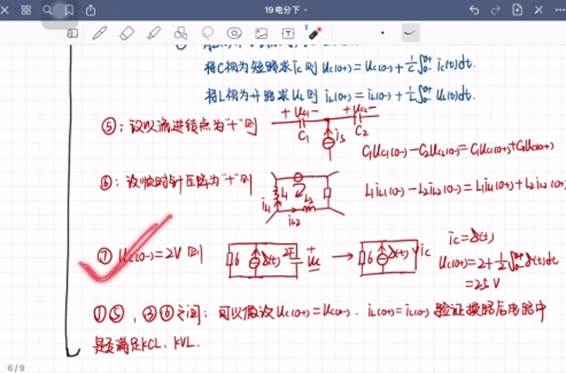 19电分下
将C视为短路求ic 则 Uc(0+)=Uc(0-)+1/C∫ic(t)dt.
将L视为开路求UL 则 iL(0+)=iL(0-)+1/L∫Udt.
⑤：设以流进结点为"+"则
+ Uc1 - + Uc2 -
C1 is C2
C1Uc1(0-)-C2Uc2(0-)=C1Uc1(0+)+C2Uc2(0+)
⑥：设顺时针压降为"+"则
L1 L2 iL1 iL2
L1iL1(0-)-L2iL2(0-)=L1iL1(0+)+L2iL2(0+)
⑦ Uc(0-)=2V 则
6 δ(t) 2F + Uc - → 6 δ(t) ic
ic=δ(t)
Uc(0+)=2+1/2∫δ(t)dt
=2.5V
①⑤，③⑥之间：可以假设Uc(0+)=Uc(0-)．iL(0+)=iL(0-) 验证换路后电路中
是否满足KCL、KVL.
6/9